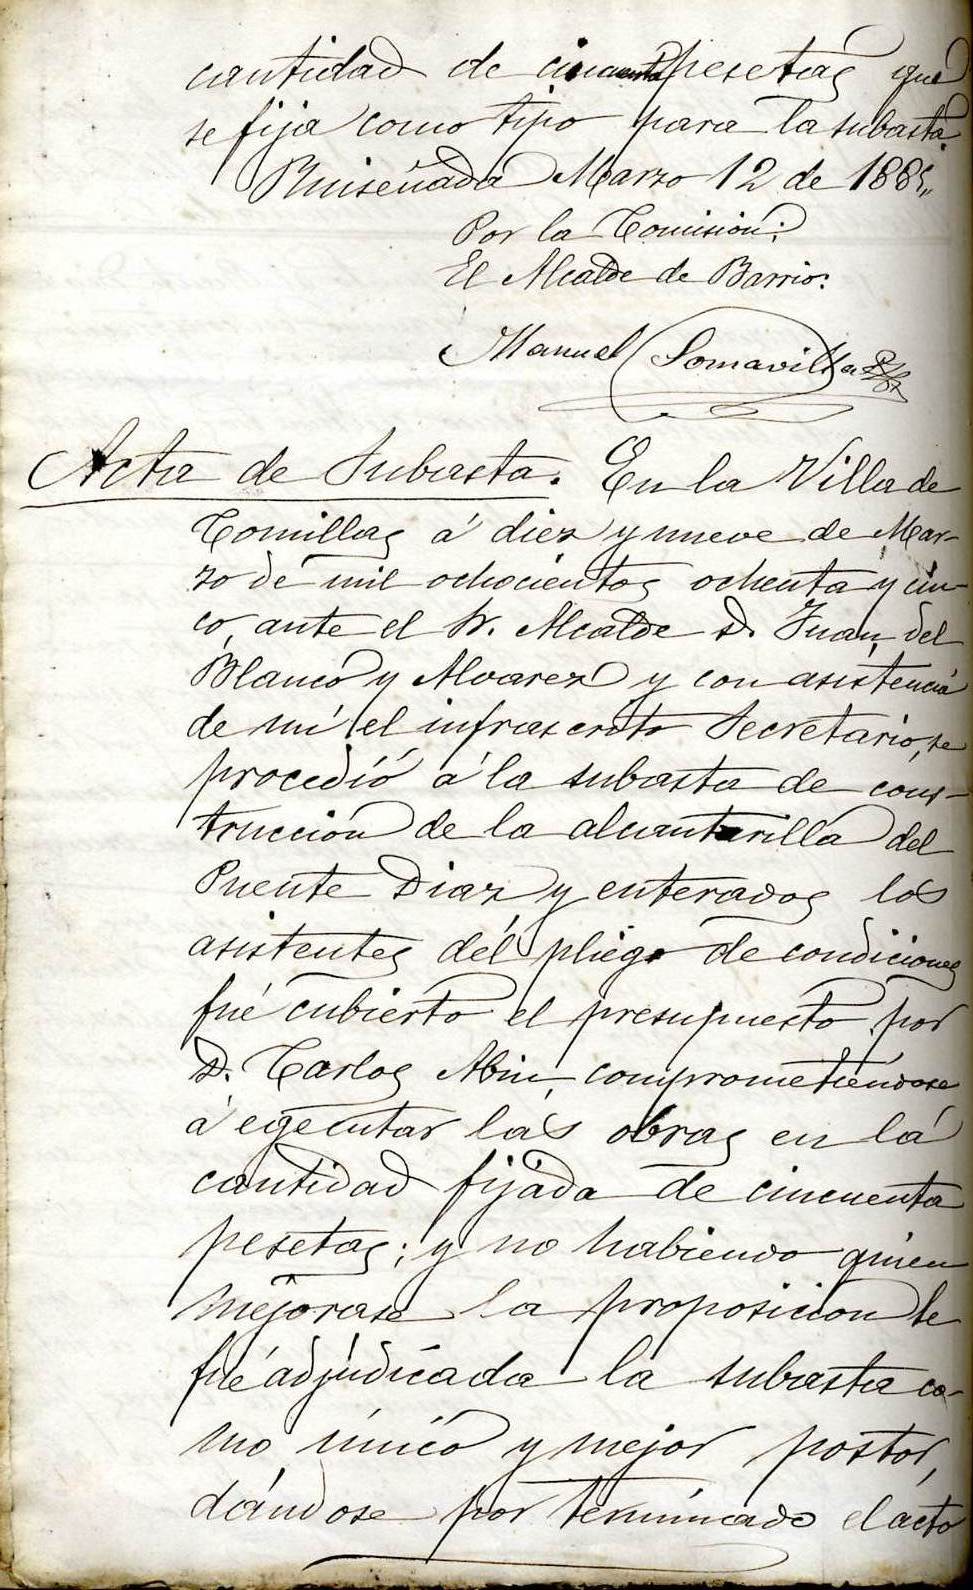 cantidad de cincuenta pesetas que
se fija como tipo para la subasta.
Ruiseñada Marzo 12 de 1885,,
Por la Comisión:
El Alcalde de Barrio:
Manuel Somavilla
Acta de Subasta. En la Villa de
Comillas á diez y nueve de Mar-
zo de mil ochocientos ochenta y cin-
co, ante el Sr. Alcalde D. Juan del
Blanco y Alvarez y con asistencia
de mí el infrascrito Secretario, se
procedió á la subasta de cons-
trucción de la alcantarilla del
Puente Diaz y enterados los
asistentes del pliego de condiciones
fué cubierto el presupuesto por
D. Carlos Abin, comprometiendose
á egecutar las obras en la
cantidad fijada de cincuenta
pesetas; y no habiendo quien
mejorase la proposicion le
fué adjudicada la subasta co-
mo único y mejor postor,
dándose por terminado el acto